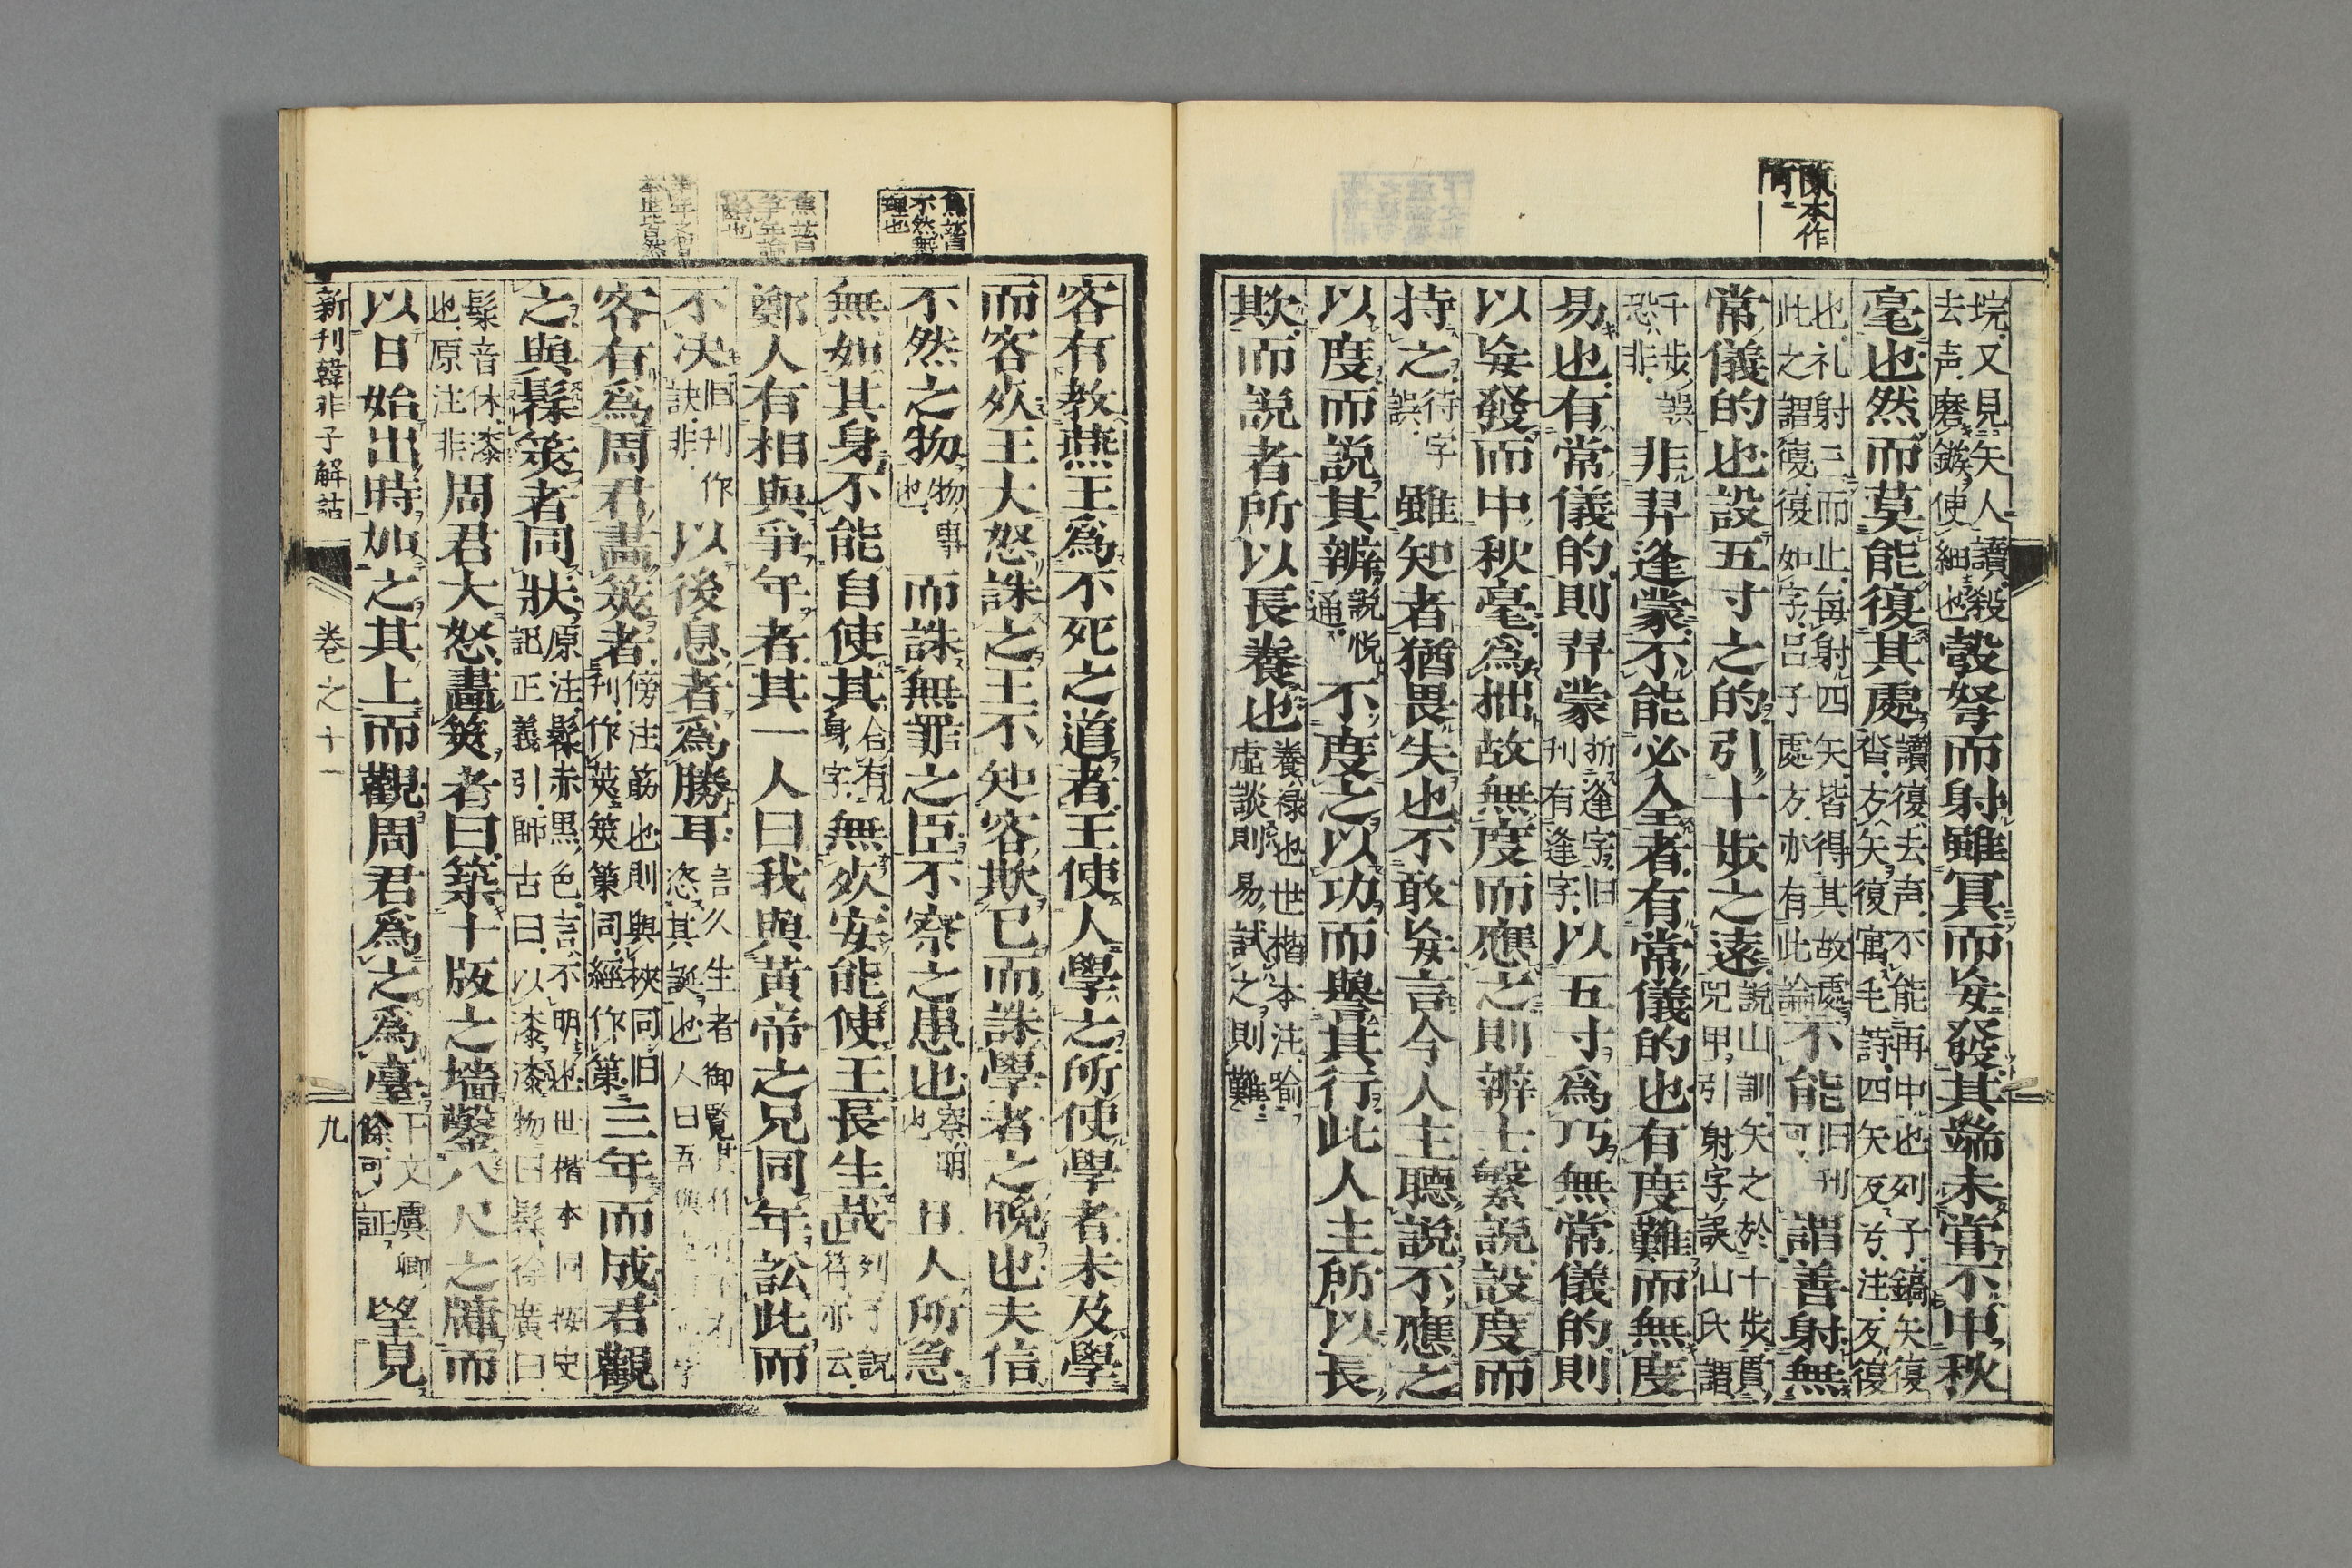 陳本作
可
垸又見矢人讀殺
去声磨鏃使細也
彀弩而射雖冥而妄發其端未嘗不中秋
毫也然而莫能復其處
讀復去声不能再中也列子鏑矢復
沓方矢復寓毛詩四矢反兮注反復
也礼射三而止毎射四矢皆得其故處
此之謂復復如字呂子處方亦有此論
不能
旧刊
可
謂善射無
常儀的也設五寸之的引十步之遠
說山訓矢之於十步貫
兕甲引射字誤山氏謂
千步誤
恐非
非羿逢蒙不能必全者有常儀的也有度難而無度
易也有常儀的則羿蒙
折逢字旧
刊有逢字
以五寸爲巧無常儀的則
以妄發而中秋毫爲拙故無度而應之則辨士繁說設度而
持之
待字
誤
雖知者猶畏失也不敢妄言今人主聽說不應之
以度而說其辨
說悅
通
不度之以功而譽其行此人主所以長
欺而說者所以長養也
養祿也世楷本注喻
虛談則易試之則難
焦竑曰
不然無
理也
焦竑曰
爭年論
客有教燕王爲不死之道者王使人學之所使學者未及學
而客死王大怒誅之王不知客欺已而誅學者之晚也夫信
不然之物
物事
也
而誅無罪之臣不察之患也
察明
也
且人所急
無如其身不能自使其
合有
身字
無死安能使王長生哉
列子說
符亦云
鄭人有相與爭年者其一人曰我與黃帝之兄同年訟此而
不決
旧刊作
訣非
以後息者爲勝耳
言久生者御覧
恣其誕也人曰吾與
客有爲周君畫筴者
傍注筯也則與梜同旧
刊作莢筴策同經作策
三年而成君觀
之與髹筴者同狀
原注髹赤黑色言不明也世楷本同按史
記正義引師古曰以漆漆物曰髹徐廣曰
髹音休漆
也原注非
周君大怒畫筴者曰築十版之墻鑿八尺之牖而
以日始出時加之其上而觀周君爲之爲臺
下文虞卿
餘可証
望見
新刊韓非子解詁
卷之十一
九